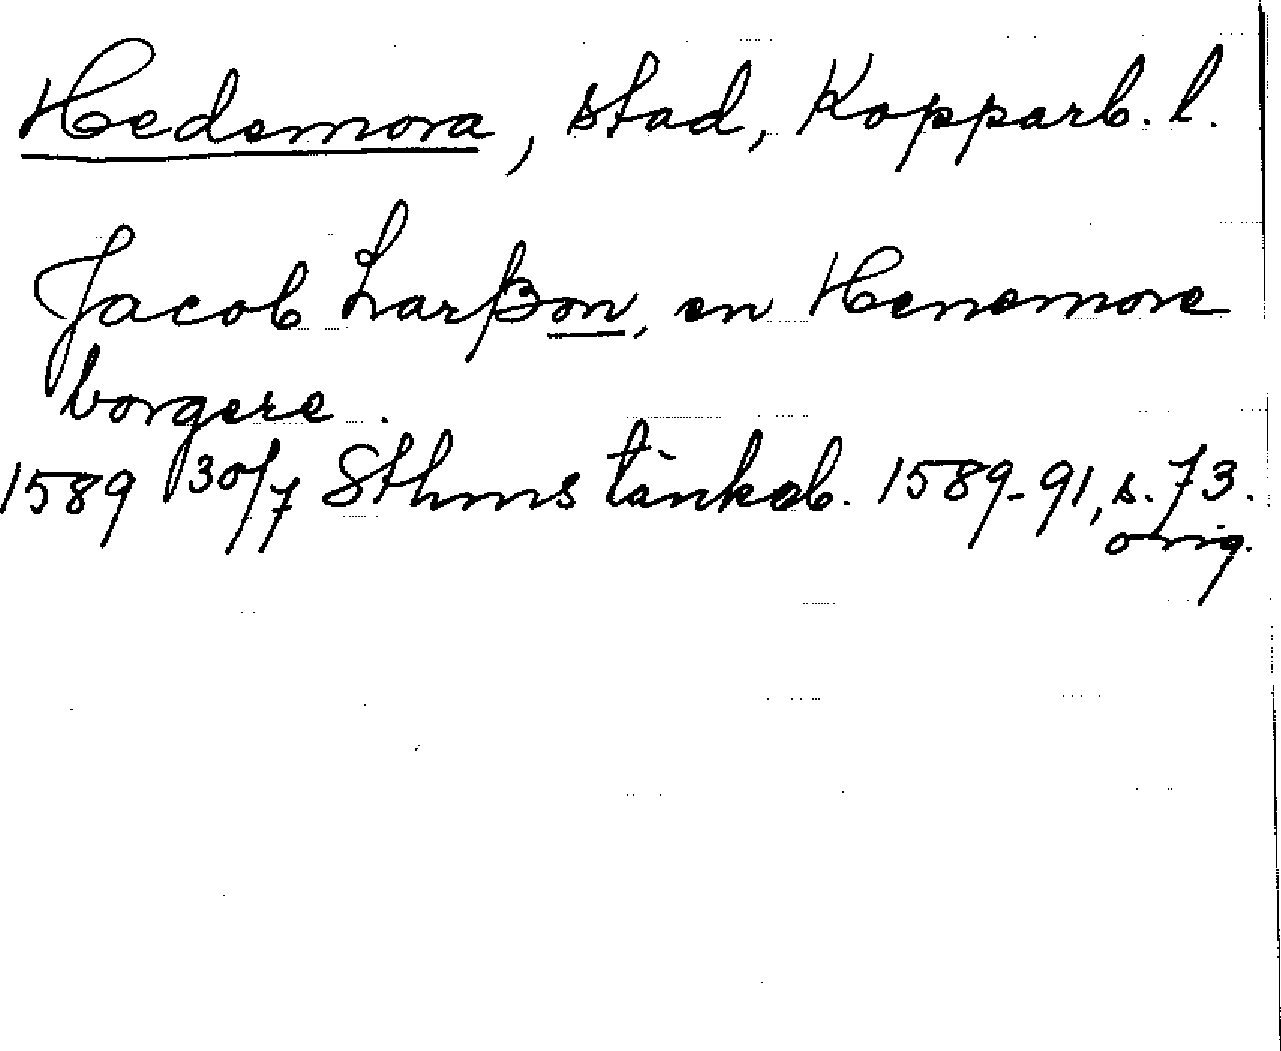 Hedemora, stad, Kopparb. l.
Jacob Larßon, en Henemore
borgere.
1589 30/7 Sthms tänkeb. 1589-91, s. 73.
orig.